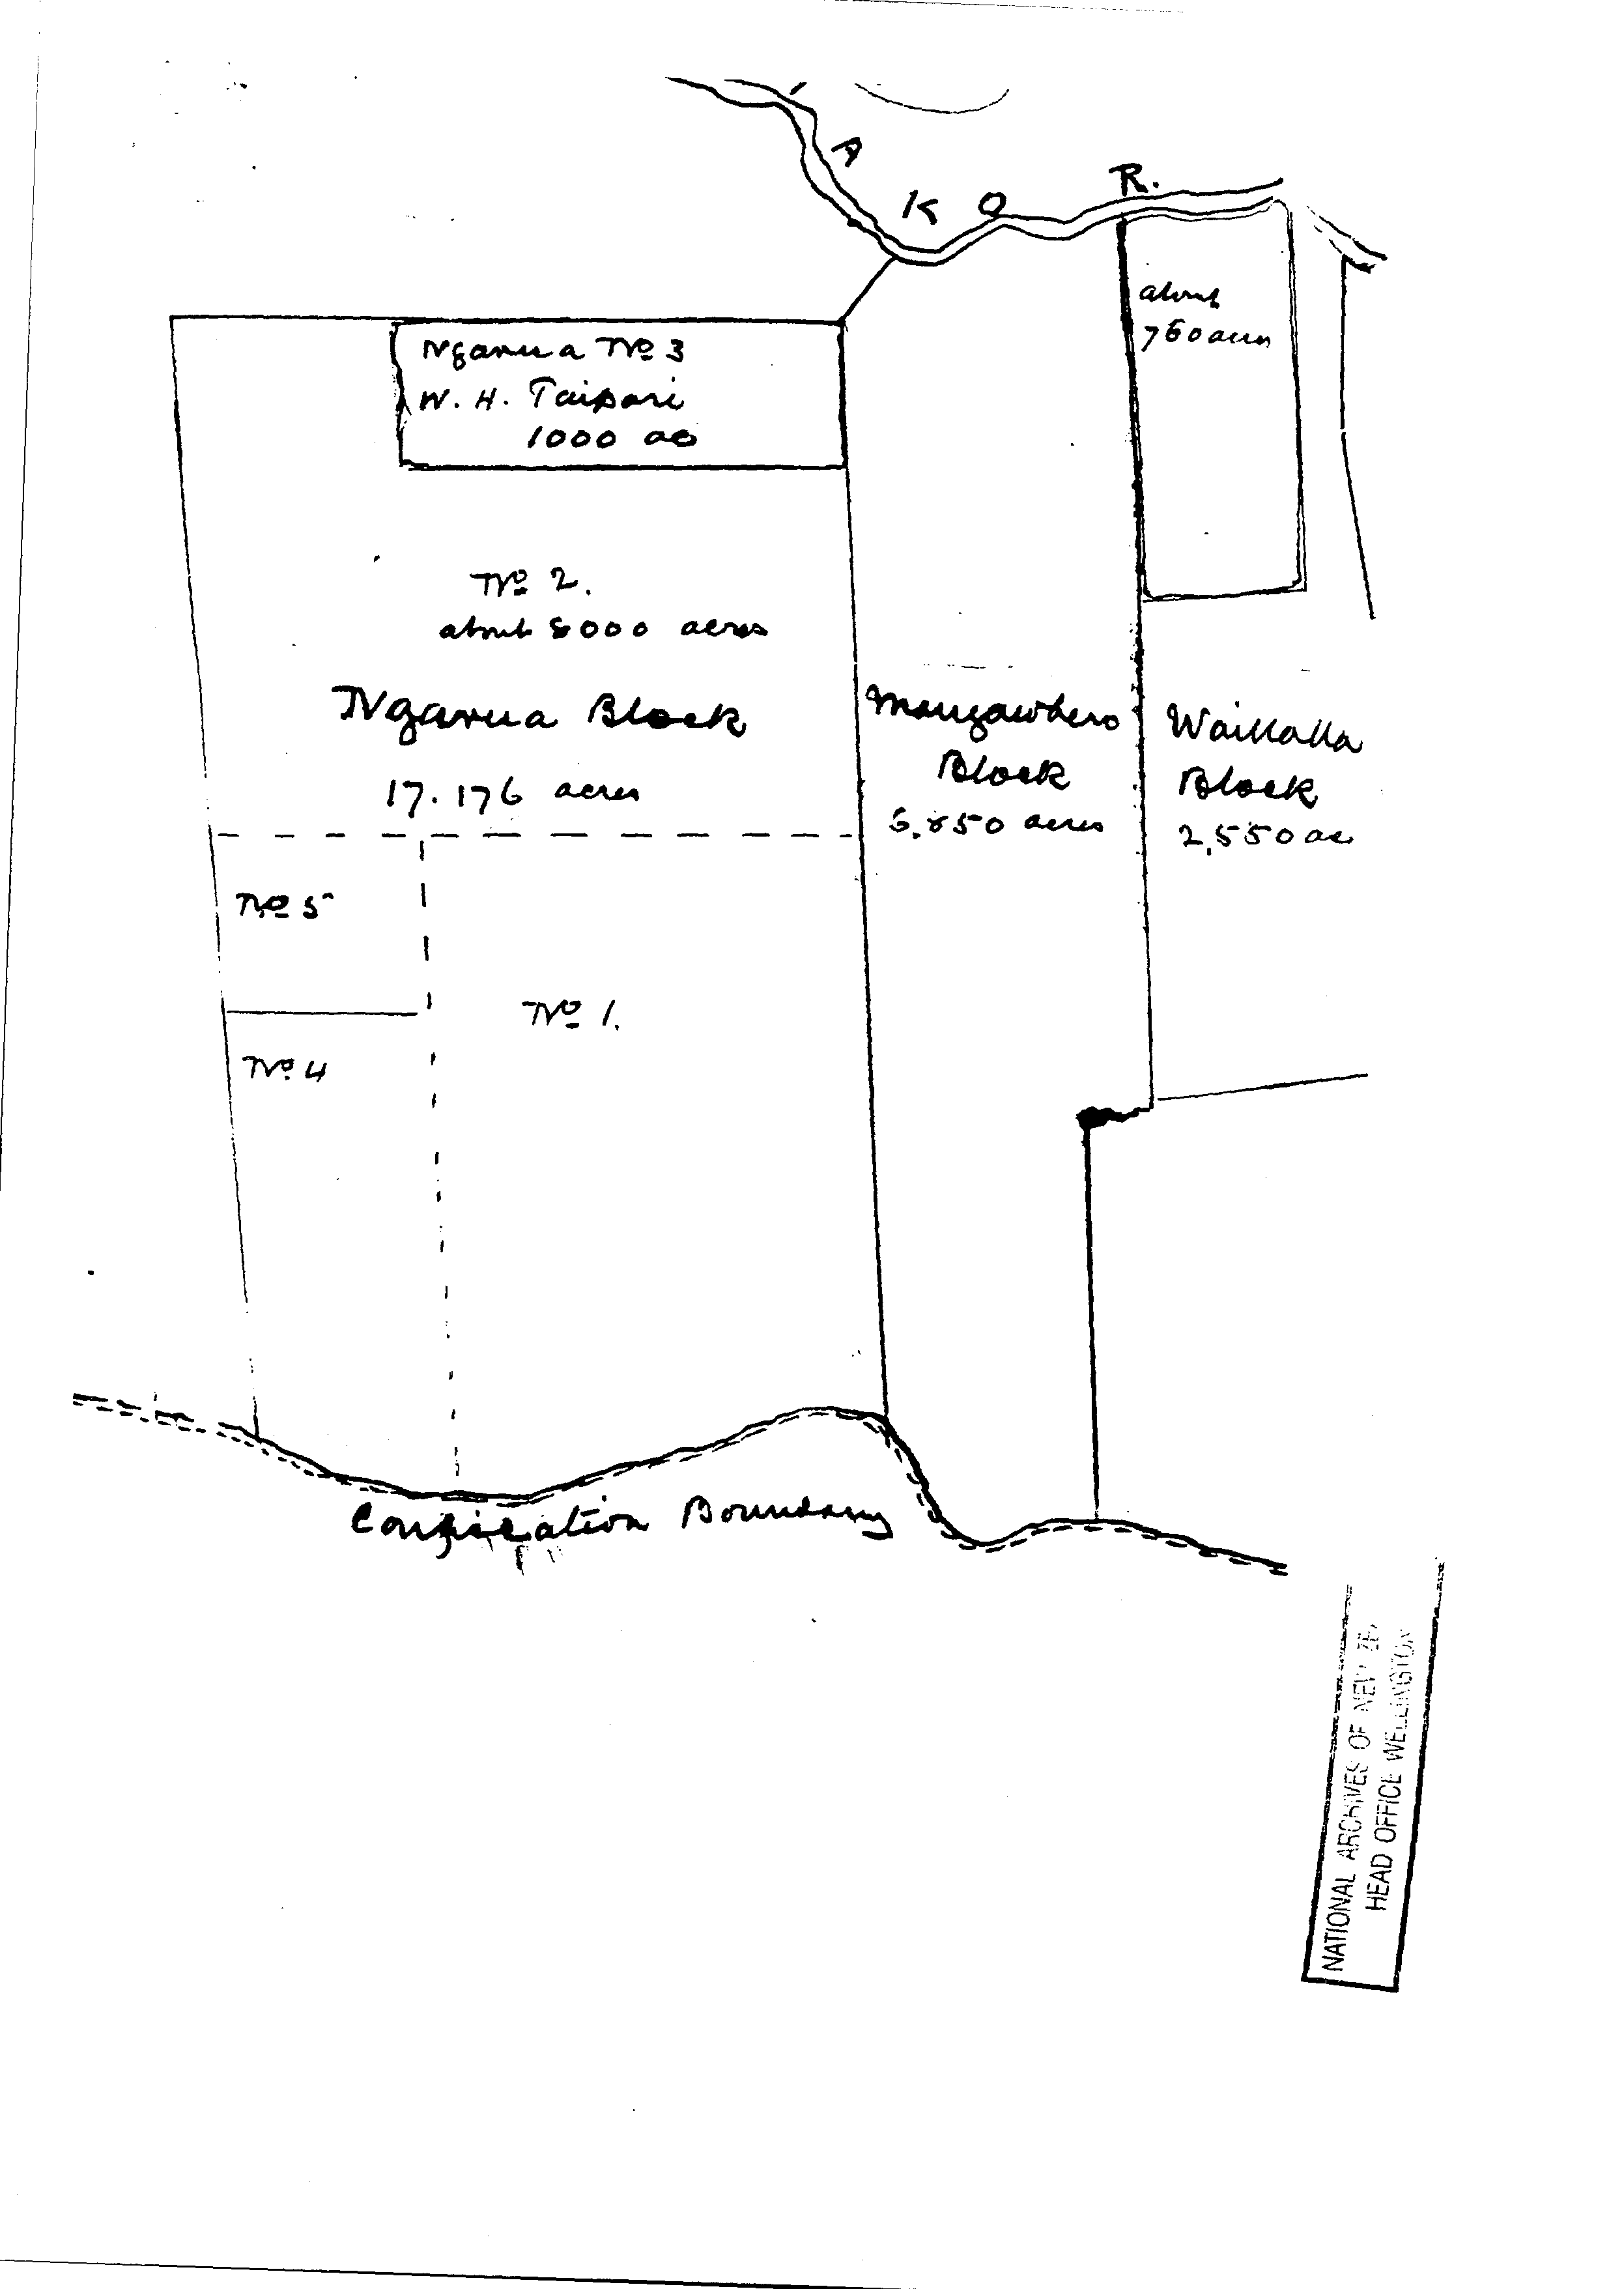 A K O R.
about
760 acres
Ngarua No 3
W. H. Taipari
1000 ac
No 2.
about 8000 acres
Ngarua Block
17.176 acres
Mangawhero
Block
acres
Waikaka
Block
2,550 ac
No 5
No 1.
No 4
Confiscation Boundary
NATIONAL ARCHIVES OF NEW ZE
HEAD OFFICE WELLINGTON